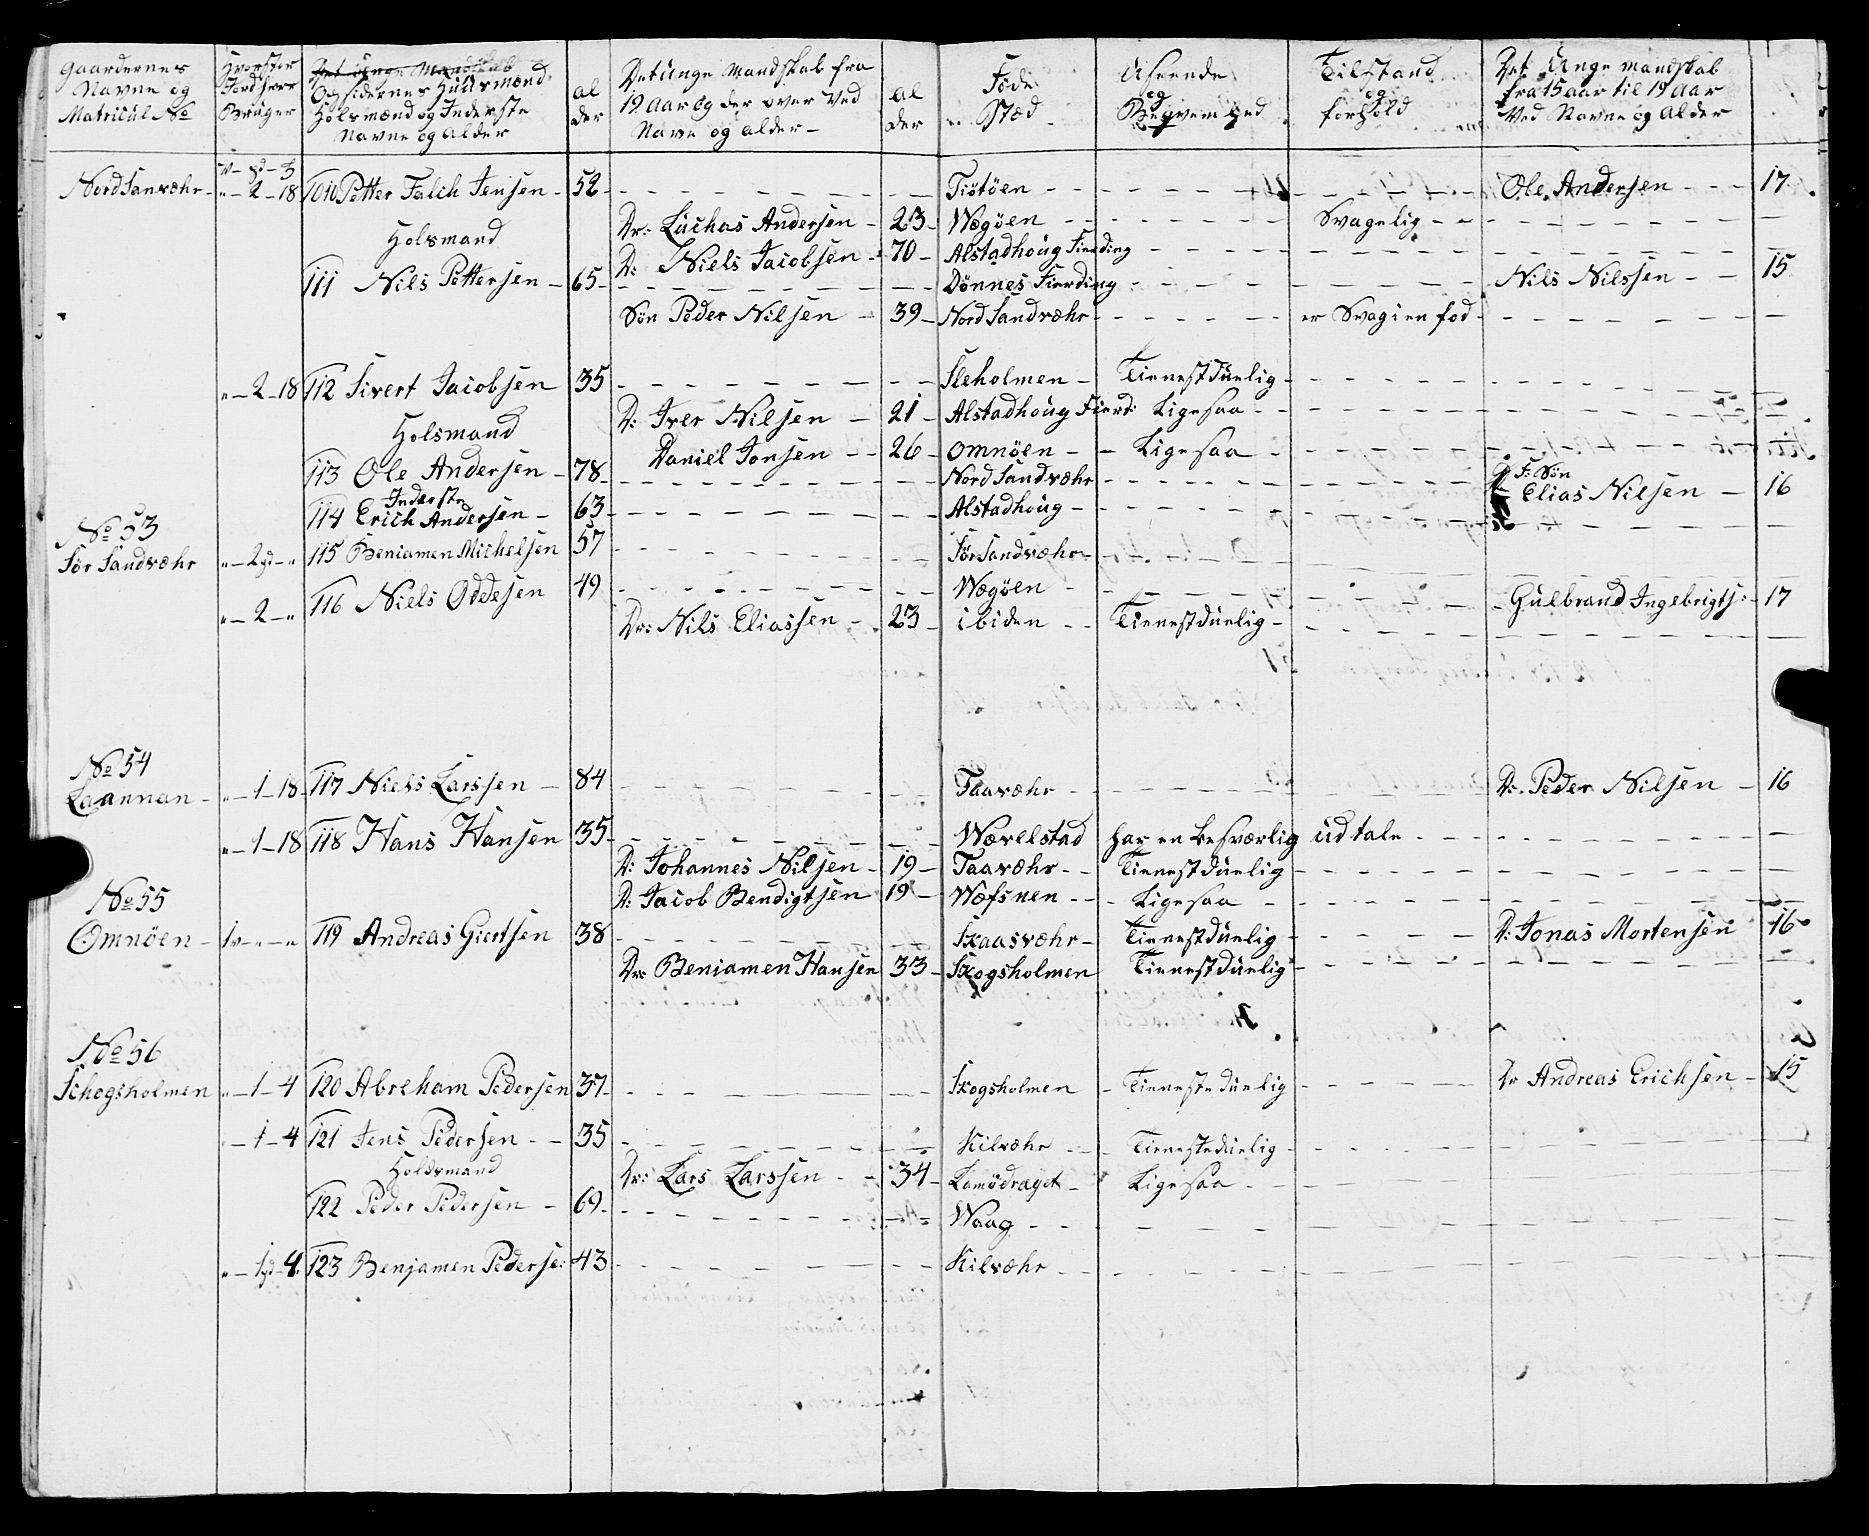 Gaardernes Navne og Matricul No | Hvor stor Jord hver Bruger | Det unge Mandskab Opsidernes Huusmænd Holsmænd og Inderste Navne og Alder | al der | Det unge Mandskab fra 19 aar og der over Ved Navne og alder | al der | Føde Stæd | Useende og Beqvemhed | Tilstand og forhold | Det Unge mandskab fra 15 aar til 19 Aar Ved Navne og Alder
Nord Sanvæhr - " - 2 - 18 | 110 Petter Falch Jensen - 52 | Tiøtöen | Ole Andersen - 17
Dr: Luchas Andersen - 23 - Wægöen | Svagelig
Holsmand
D: Niels Jacobsen - 70 - Alstadhoug Fierding
111 Nils Pettersen - 65 | Dönnes Fierding | Nils Nilssen - 15
Sön Peder Nilsen - 39 - Nord Sandvæhr | er Svag i en fod
" - 2 - 18 | 112 Sivert Jacobsen 35 | Sleholmen - Tienestduelig
D: Iver Nilsen - 21 - Alstadhoug Fierd: Ligesaa
Holsmand
Daniel Jonsen - 26 - Omnöen - Ligesaa
113 Ole Andersen - 78 | Nord Sandvæhr | F: Sön Elias Nilsen - 16
Inderste
114 Erich Andersen - 63 | Alstadhoug
No 53
Sör Sandvæhr " - 2 pd - " | 115 Beniamen Michelsen 57 | Sör Sandvæhr
" - 2 - " | 116 Niels Oddesen 49 | Wægöen | Gulbrand Ingebrigts: - 17
Dr: Nils Eliassen - 23 - ibiden - Tienestduelig
No 54
Laannan - " - 1 - 18 | 117 Niels Larssen - 84 | Taavæhr | D: Peder Nilsen - 16
" - 1 - 18 | 118 Hans Hansen 35 | Wævelstad | har en besværlig udtale
D: Johannes Nilsen - 19 - Taavæhr - Tienestduelig
D: Jacob Bendigtsen 19 - Wæfsnen - Ligesaa
No 55
Omnöen - 1 v - " - " | 119 Andreas Giertsen 38 | Skaasvæhr - Tienestduelig | D: Jonas Mortensen 16
Dr: Beniamen Hansen 33 - Skogsholmen Tienestduelig
No 56
Schogsholmen " - 1 - 4 | 120 Abreham Pedersen 37 | Skogsholmen - Tienesteduelig | Dr Andreas Erichsen - 15
- 1 - 4 | 121 Jens Pedersen - 35 | Kilvæhr - Tienesteduelig
Holdsmand
Dr: Lars Larssen - 34 - Lamödraget - Ligesaa
122 Peder Pedersen - 69 | Waag
" - 1 pd - 4 | 123 Benjamen Pederse: 43 | Kilvæhr